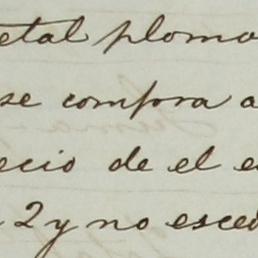 etal plomo
se compra a
ecio de el e
2 y no esce